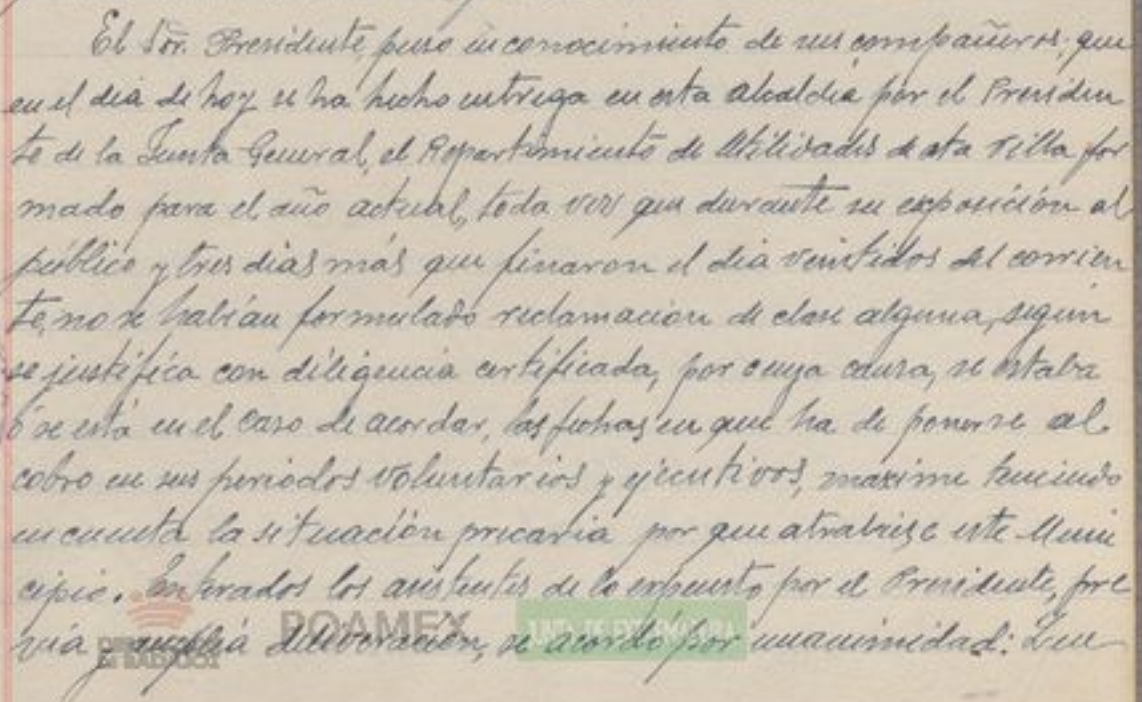 El Sor. Presidente, puso en conocimiento de sus compañeros, que
en el dia de hoy se ha hecho entrega en esta alcaldia por el Presiden
te de la Junta General, el Repartimiento de Utilidades de esta villa for
mado para el año actual, toda vez que durante su exposición al
público y tres dias más que finaron el dia veintidos del corrien
te, no se habían formulado reclamacion de clase alguna, según
se justifica con diligencia certificada, por cuya causa, se estaba
ó se está en el caso de acordar, las fechas en que ha de ponerse al
cobro en sus periodos voluntarios y ejecutivos, maxime teniendo
en cuenta la situación precaria por que atrabiese este Muni
cipio. Enterados los asistentes de lo expuesto por el Presidente, pre
via y amplia deliveración, se acordó por unanimidad: Que
POAMEX
JUNTA DE EXTREMADURA